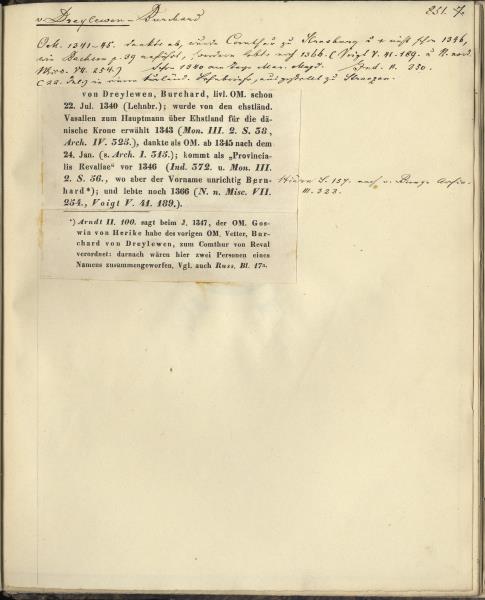 v Dreylewen - Burchard
251. 7c
OM. 1341-45. dankte ab, wurde Comthur zu Strasburg u + nicht schon 1346,
wie Bachem p. 39 anführt, sondern lebte noch 1366. (Voigt V. 41. 189. u N. nord.
Misc. VII. 254.) Schon 1340 am Tage Mar. Magd. Ind. n. 230.
(22. Jul.)
von Dreylewen, Burchard, livl. OM. schon
22. Jul. 1340 (Lehnbr.); wurde von den ehstländ.
Vasallen zum Hauptmann über Ehstland für die dä-
nische Krone erwählt 1343 (Mon. III. 2. S. 58,
Arch. IV. 325.), dankte als OM. ab 1345 nach dem
24. Jan. (s. Arch. I. 315.); kommt als „Provincia-
lis Revaliae“ vor 1346 (Ind. 372. u. Mon. III.
2. S. 56., wo aber der Vorname unrichtig Bern-
hard*); und lebte noch 1366 (N. n. Misc. VII.
254., Voigt V. 41. 189.).
S. 157. nach v. Bunge Archiv
III. 323.
*) Arndt II. 100. sagt beim J. 1347, der OM. Gos-
win von Herike habe des vorigen OM. Vetter, Bur-
chard von Dreylewen, zum Comthur von Reval
verordnet: darnach wären hier zwei Personen eines
Namens zusammengeworfen. Vgl. auch Russ. Bl. 17a.